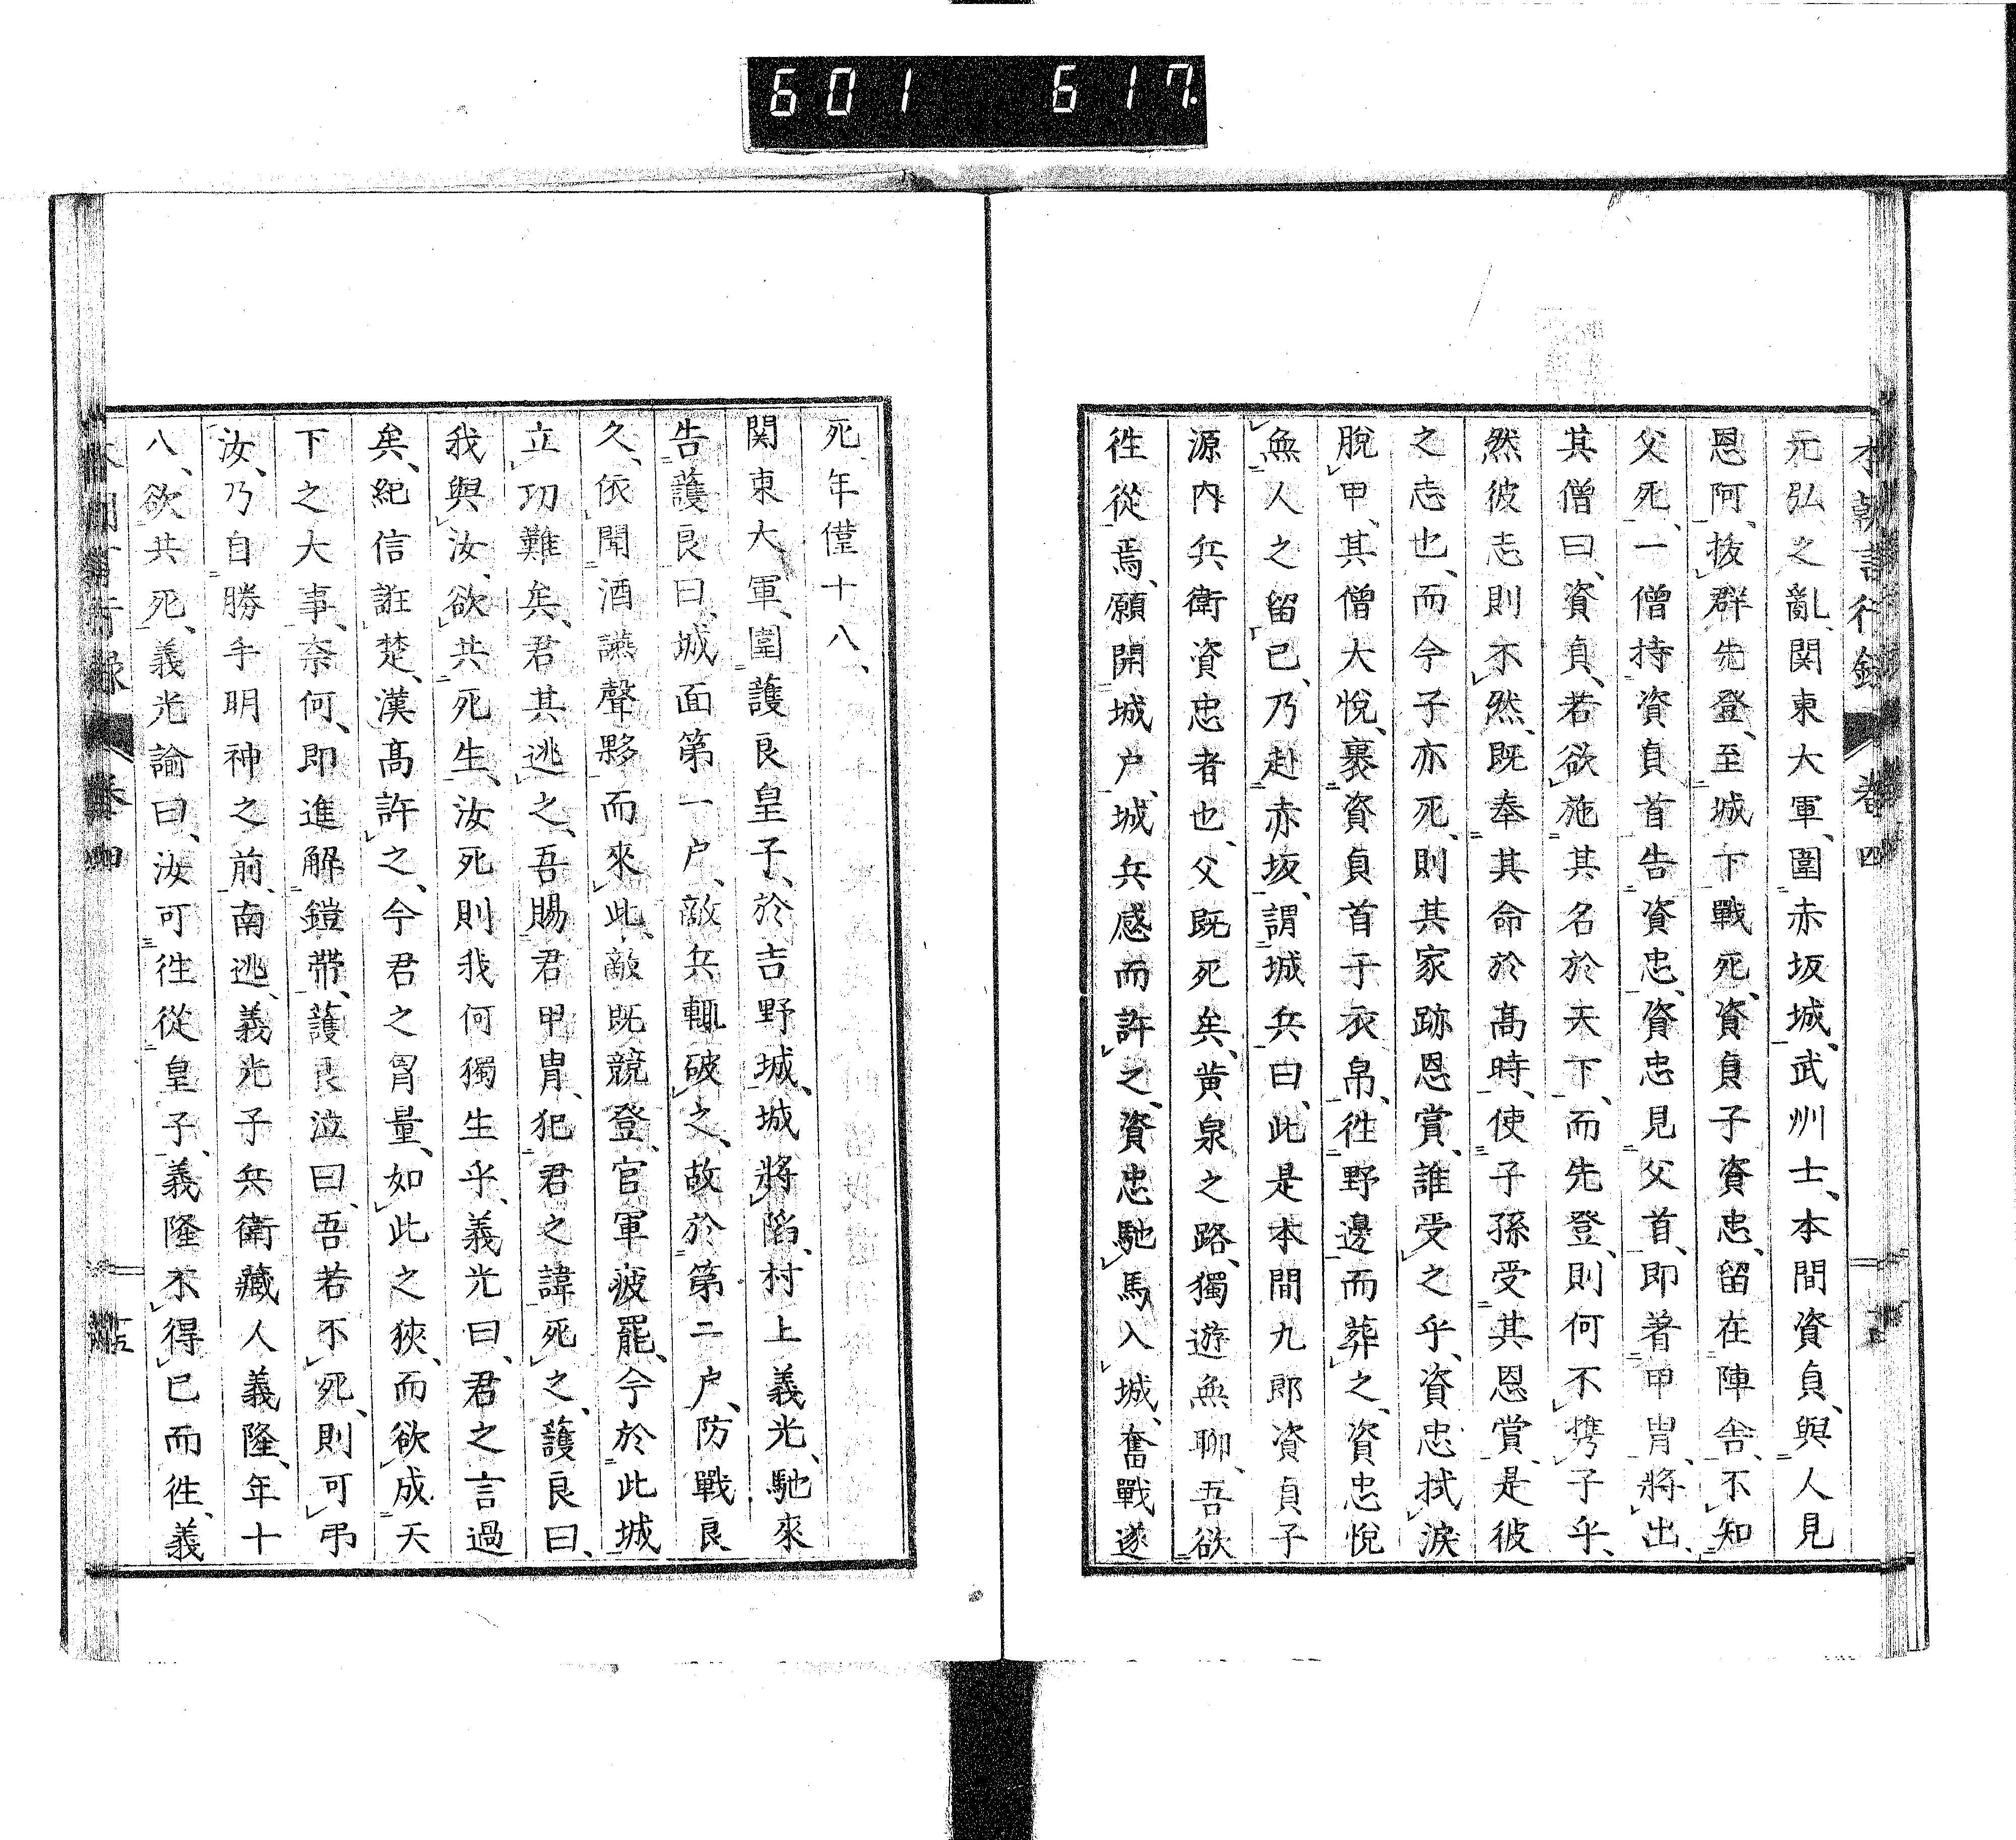 601 617.
元弘之亂、関東大軍、圍赤坂城、武州士、本間資貞、與人見
恩阿、抜群先登、至城下戰死、資貞子資忠、留在陣舎、不知
父死、一僧持資貞首告資忠、資忠見父首、即著甲冑、將出、
其僧曰、資貞、若欲施其名於天下、而先登、則何不携子乎、
然彼志則不然、既奉其命於高時、使子孫受其恩賞、是彼
之志也、而今子亦死、則其家跡恩賞、誰受之乎、資忠拭淚
脫甲、其僧大悅、裹資貞首于衣帛、徃野邊而葬之、資忠悅
無人之留已、乃赴赤坂、謂城兵曰、此是本間九郎資貞子
源内兵衛資忠者也、父既死矣、黄泉之路、獨遊無聊、吾欲
徃從焉、願開城户、城兵感而許之、資忠馳馬入城、奮戰遂
死年僅十八、
関東大軍、圍護良皇子、於吉野城、城將陷、村上義光、馳來
告護良曰、城面第一户、敵兵輙破之、故於第二户、防戰良
久、依聞酒讌聲夥而來此、敵既競登、官軍疲罷、今於此城
立功難矣、君其逃之、吾賜君甲冑、犯君之諱死之、護良曰、
我與汝、欲共死生、汝死則我何獨生乎、義光曰、君之言過
矣、紀信誑楚、漢高許之、今君之胷量、如此之狹、而欲成天
下之大事、奈何、即進解鎧帶、護良泣曰、吾若不死、則可弔
汝、乃自勝手明神之前、南逃、義光子兵衛藏人義隆、年十
八、欲共死、義光諭曰、汝可徃從皇子、義隆不得已而徃、義